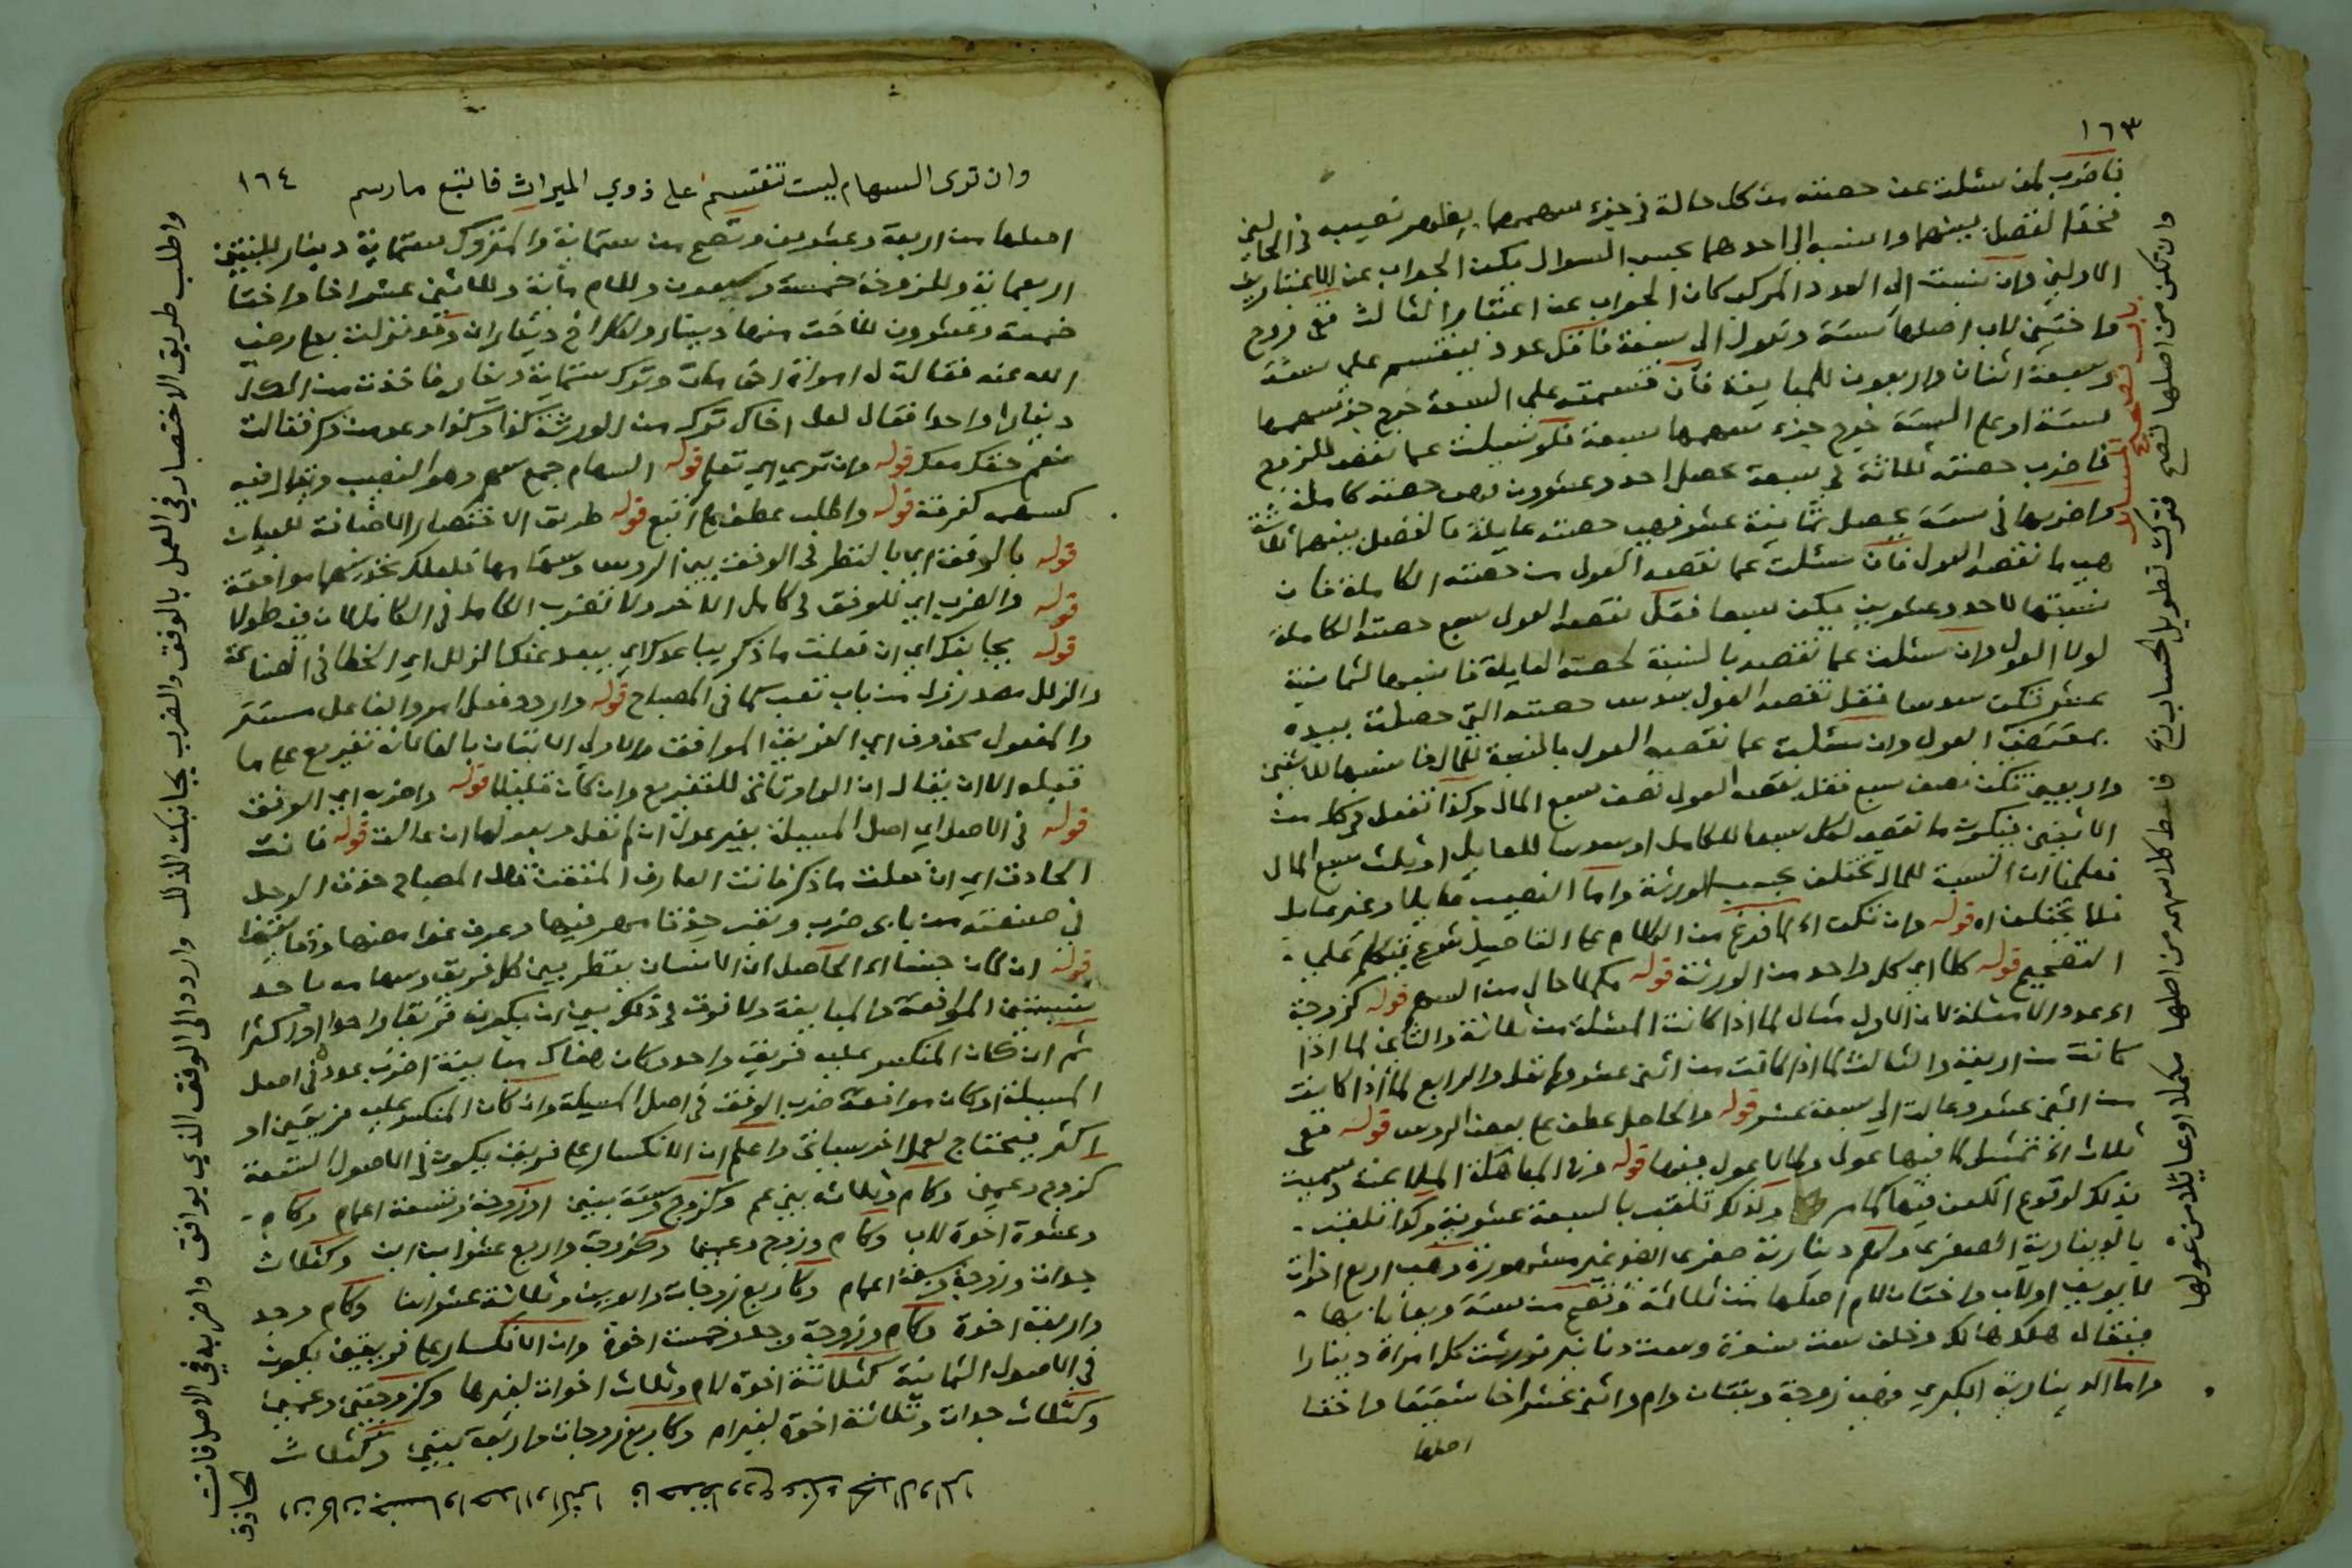 ١٦٣
فاضرب لمن سئلت عن حصته من كل حالة في جزء سهمها يظهر نصيبه في الحالين
فخذ الفضل بينهما وانسبه الى احدهما بحسب السوال يكن الجواب عن الاعتبارين
الاولين وان نسبت الى العدد المركب كان الجواب عن اعتبار الثالث ففي زوج
واختين لاب اصلها ستة وتعول الى سبعة فاقل عدد ينقسم على ستة
وسبعة اثنان واربعون للمباينة فان قسمته على السبعة خرج جزء سهمها
ستة او على الستة خرج جزء سهمها سبعة فلو سئلت عما نقص للزوج
فاضرب حصته ثلاثة في سبعة يحصل احد وعشرون وهي حصته كاملة
واضربها في ستة يحصل ثمانية عشر فهي حصته عايلة فالفضل بينهما ثلاثة
هي ما نقصه العول فان سئلت عما نقصه العول من حصته الكاملة فان
نسبتها للاحد وعشرين يكن سبعا فقل نقصه العول سبع حصته الكاملة
لولا العول وان سئلت عما نقصه بالنسبة لحصته العايلة فانسبها لثمانية
عشر تكن سدسا فقل نقصه العول سدس حصته التي حصلت بيده
بمقتضى العول وان سئلت عما نقصه العول بالنسبة للمال فانسبها للاثنين
واربعين تكن نصف سبع فقل نقصه العول نصف سبع المال وكذا تفعل في كل من
الاثنين فيكون ما نقصه لكل سبعا للكامل او سدسا للعايل او ثلث سبع المال
فعلمنا ان النسبة للمال تختلف بحسب الورثة واما النصيب عايلا وغير عايل
فلا تختلف اه قوله وان تكن اه لما فرغ من الكلام على التاصيل شرع يتكلم على
التصحيح قوله كلا اي كل واحد من الورثة قوله مكملا حال من السهم قوله كزوجة
اه عدد الامثلة لان الاول مثال لما اذا كانت المسئلة من ثلاثة والثاني لما اذا
كانت من اربعة والثالث لما اذا كانت من اثني عشر ولم تعل والرابع لما اذا كانت
من اثني عشر وعالت الى سبعة عشر قوله والحاصل عطف على بعض الردس قوله ففي
ثلاث اه تمثيل لما فيها عول ولما لا عول فيها قوله من المباهلة الملاعنة وسميت
بذلك لوقوع اللعن فيها كما مر وكذلك تلقب بالسبعة عشرية وكذا تلقب
بالدينارية الصغرى ولهم دينارية صغرى اخرى غير مشهورة وهي اربع اخوات
لابوين او لاب واختان لام اصلها من ثلاثة وتصح من ستة ويعايا بها
فيقال هلك هالك وخلف ست نسوة وست دنانير فورثت كل امراة دينارا
واما الدينارية الكبرى فهي زوجة وبنتان وام واثني عشر اخا شقيقا واختا
اصلها
باب تصحيح المسائل
وان تكن من اصلها تصح فترك تطويل الحساب ربح فاعط كلا سهمه من اصلها مكملا او عايلا من عولها
١٦٤
وان ترى السهام ليست تنقسم على ذوي الميراث فاتبع ما رسم
اصلها من اربعة وعشرين وتصح من ستماية والمتروك ستماية دينار للبنتين
اربعماية وللزوجة خمسة وسبعون وللام ماية وللاثني عشر اخا واختا
خمسة وعشرون للاخت منها دينار ولكل اخ ديناران وقد نزلت بعلي رضي
الله عنه فقالت له امراة اخي مات وترك ستماية دينار فاخذت من المال
دينارا واحدا فقال لعل اخاك ترك من الورثة كذا وكذا وعد من ذكر فقالت
نعم حقك معك قوله وان ترى اي تعلم قوله السهام جمع سهم وهو النصيب ويقال فيه
كسهمه كفرقة قوله واطلب عطف على اتبع قوله طريق الاختصار الاضافة للبيان
قوله بالوفق اي بالنظر في الوفق بين الروس وسهامها فلعلك تجد بينهما موافقة
قوله والضرب اي للوفق في كامل الاخر ولا تضرب الكامل في الكامل لان فيه طولا
قوله يجانبك اي ان فعلت ما ذكر يباعدك اي يبعد عنك الزلل اي الخطا في الصناعة
والزلل مصدر زلل من باب تعب كما في المصباح قوله واردد فعل امر والفاعل مستتر
والمفعول محذوف اي الفريق الموافق والاولى الاتيان بالفاء لانه تفريع على ما
قبله الا ان يقال ان الواو تاتي للتفريع وان كان قليلا قوله واضربه اي الوفق
قوله في الاصل اي اصل المسيلة بغير عول ان لم تعل وبعولها ان عالت قوله فانت
الحاذق اي ان فعلت ما ذكر فانت العارف المتقن قال المصباح حذق الرجل
في صنعته من بابي ضرب وتعب حذقا مهر فيها وعرف غوامضها ودقايقها
قوله ان كان جنسا اه الحاصل ان الانسان ينظر بين كل فريق وسهامه باحد
نسبتين الموافقة والمباينة ولا فرق في ذلك بين ان يكون فريقا واحدا او اكثرا
ثم ان كان المنكسر عليه فريق واحد وكان هناك مباينة اضرب عدده في اصل
المسيلة او كان موافقة ضرب الوفق في اصل المسيلة وان كان المنكسر عليه فريقين او
اكثر فيحتاج لعمل اخر سياتي واعلم ان الانكسار على فريق يكون في الاصول التسعة
كزوج وعمين وكام وثلاثة بني عم وكزوج وستة بنين او زوجة وتسعة اعمام وكام
وعشرة اخوة لاب وكام وزوج وعمين وكزوجة واربع عشر ابن ابن وكثلاث
جدات وزوجة وستة اعمام وكاربع زوجات وابوين وثلاثة عشر ابنا وكام وجد
واربعة اخوة وكام وزوجة وجد وخمسة اخوة وان الانكسار على فريقين يكون
في الاصول الثمانية كثلاثة اخوة لام وثلاث اخوات لغيرها وكزوجتين وعمين
وكثلاث جدات وثلاثة اخوة لغير ام وكاربع زوجات واربعة بنين وكثلاث
واطلب طريق الاختصار في العمل بالوفق والضرب يجانبك الزلل واردد الى الوفق الذي يوافق واضربه في الاصل فانت الحاذق
ان كان جنسا واحدا او اكثرا فاحفظ ودع عنك الجدال والمرا